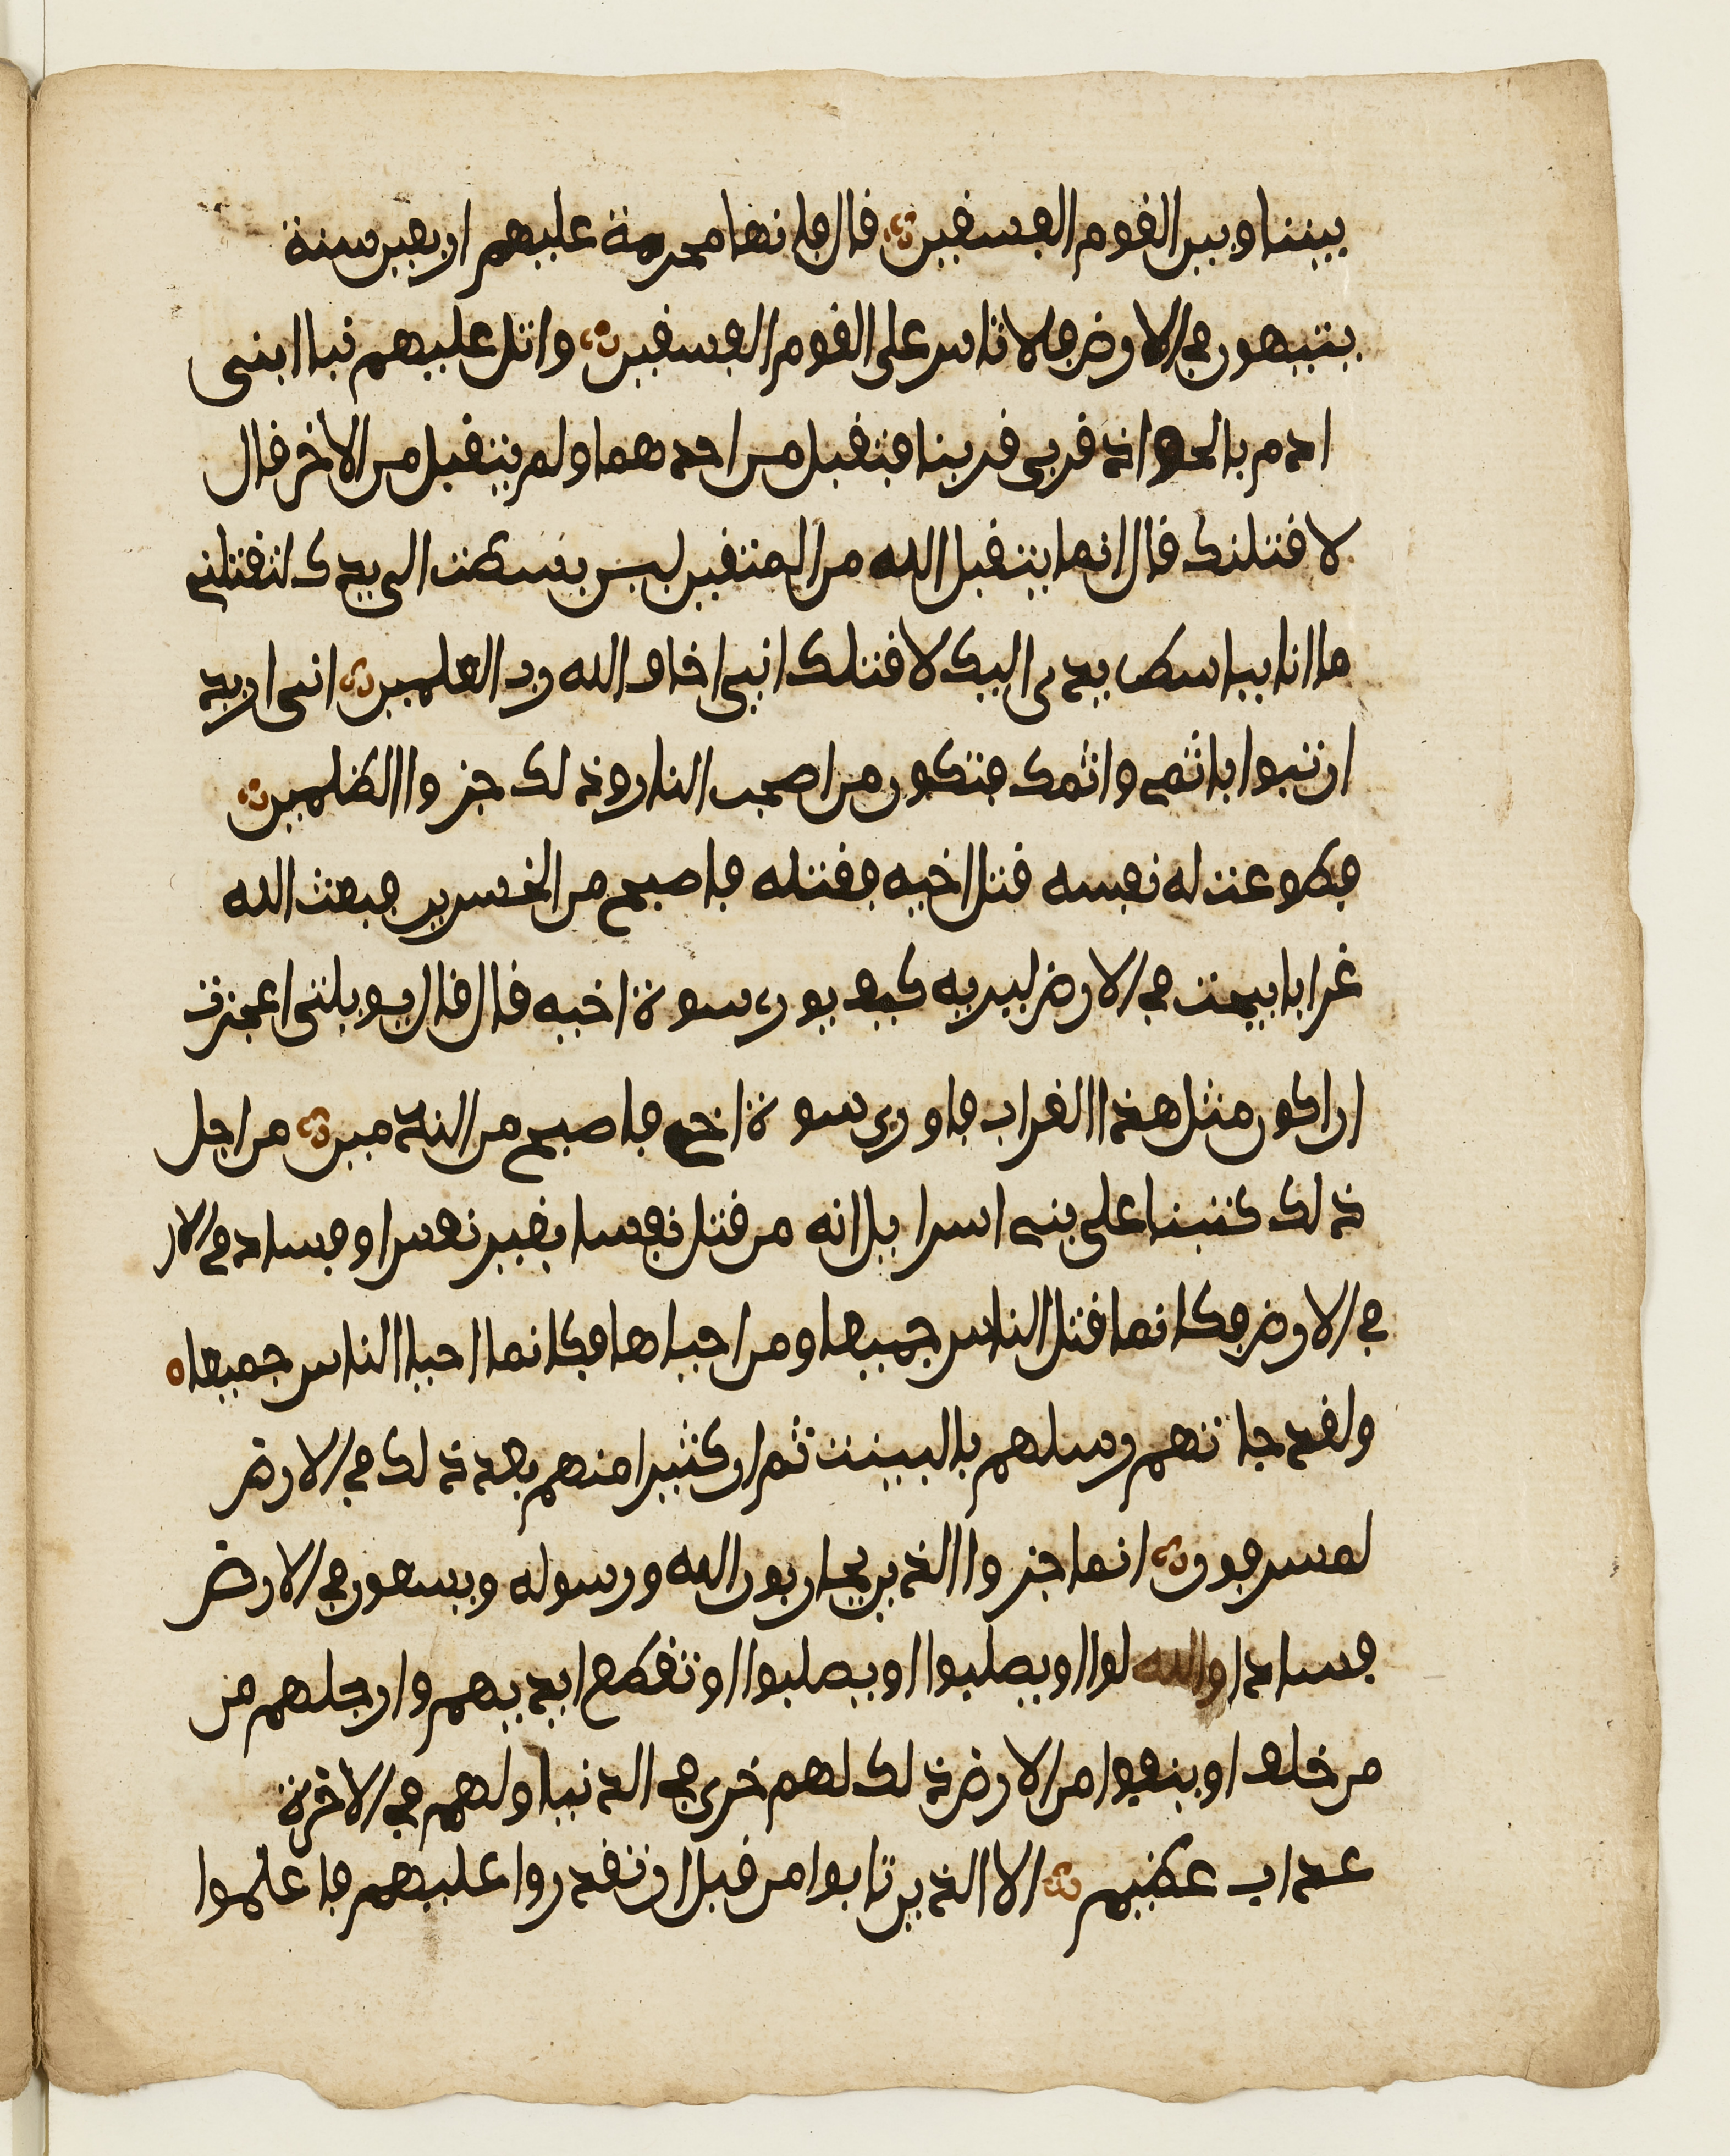 بيننا وبين القوم الفسقين قال فانها محرمة عليهم اربعين سنة
يتيهون في الارض فلا تاس على القوم الفسقين واتل عليهم نبا ابنى
ادم بالحق اذ قربى قربنا فتقبل من احدهما ولم يتقبل من الاخر قال
لاقتلنك قال انما يتقبل الله من المتقين لين بسطت الى يدك لتقتلنى
ما انا بباسط يدى اليك لاقتلك انى اخاف الله رب العلمين انى اريد
ان تبوا باثمى واثمك فتكون من اصحب النار وذلك جزوا الظلمين
فطوعت له نفسه قتل اخيه فقتله فاصبح من الخسرين فبعث الله
غرابا يبحث في الارض ليريه كيف يورى سوة اخيه قال قال يويلتى اعجزت
ان اكون مثل هذا الغراب فاورى سوة اخى فاصبح من الندمين من اجل
ذلك كتبنا على بنى اسرايل انه من قتل نفسا بغير نفس او فساد في الار
في الارض فكانما قتل الناس جميعا ومن احياها فكانما احيا الناس جميعا
ولقد جاتهم رسلهم بالبينت ثم ان كثيرا منهم بعد ذلك في الارض
لمسرفون انما جزوا الذين يحاربون الله ورسوله ويسعون في الارض
فسادا والله لوا او يصلبوا او يصلبوا او تقطع ايديهم وارجلهم من
من خلف او ينفوا من الارض ذلك لهم خزى في الدنيا ولهم في الاخرة
عذاب عظيم الا الذين تابوا من قبل ان تقدروا عليهم فاعلموا